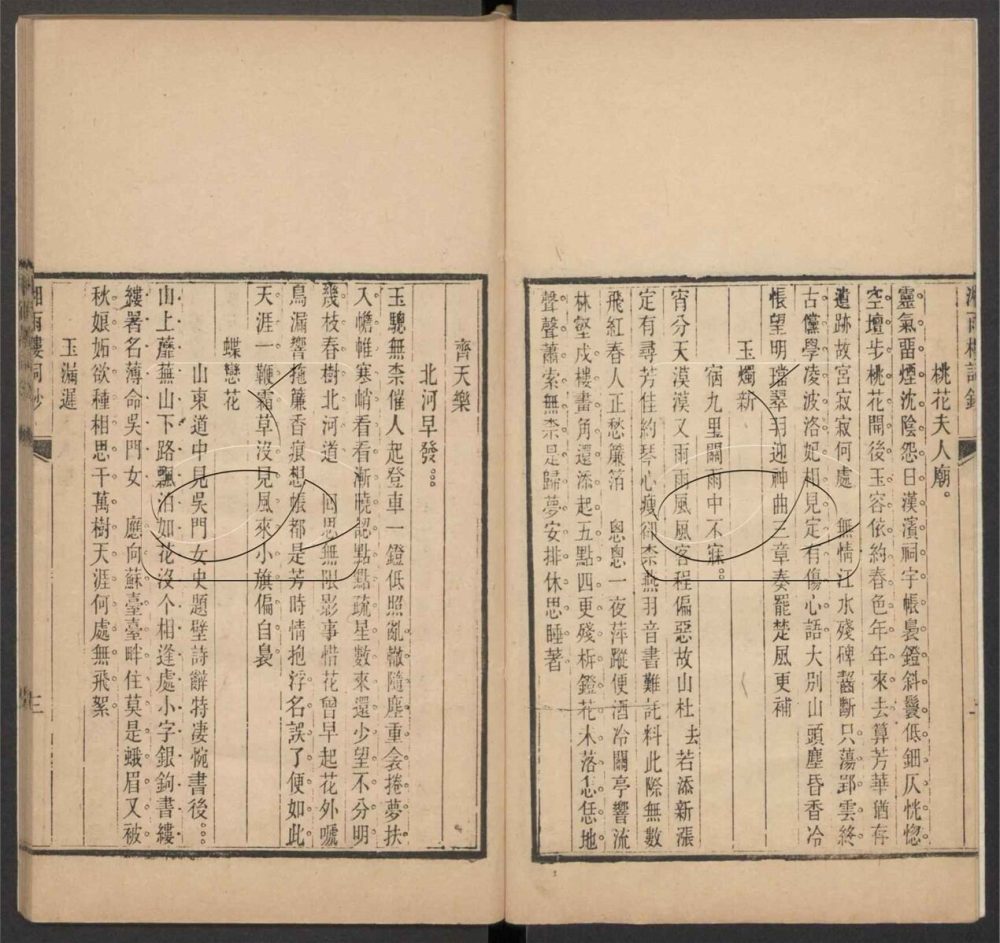 桃花夫人廟
靈氣畱煙沈陰怨日漢濱祠宇帳裊鐙斜鬟低鈿仄恍惚
空壇步桃花開後玉容依約春色年年來去算芳華猶存
遺跡故宮寂寂何處 無情江水殘碑齧斷只蕩郢雲終
古儻學凌波洛妃相見定有傷心語大別山頭塵昏香冷
悵望明璫翠羽迎神曲三章奏罷楚風更補
玉燭新
宿九里關雨中不寐
宵分天漠漠又雨雨風風客程偏惡故山杜去若添新漲
定有尋芳佳約琴心瘦卻柰燕羽音書難託料此際無數
飛紅春人正愁簾箔 悤悤一夜萍蹤便酒冷關亭響流
林壑戍樓畫角還添起五點四更殘柝鐙花木落怎恁地
聲聲蕭索無柰是歸夢安排休思睡著
齊天樂
北河早發
玉驄無柰催人起登車一鐙低照亂轍隨塵重衾捲夢扶
入幨帷寒峭看看漸曉認點點疏星數來還少望不分明
幾枝春樹北河道 回思無限影事惜花曾早起花外嗁
鳥漏響拖簾香痕想帳都是芳時情抱浮名誤了便如此
天涯一鞭霜草沒見風來小旗偏自裊
蝶戀花
山東道中見吳門女史題壁詩辭特凄惋書後
山上蘼蕪山下路飄泊如花沒个相逢處小字銀鉤書縷
縷署名薄命吳門女 應向蘇臺臺畔住莫是蛾眉又被
秋娘妬欲種相思千萬樹天涯何處無飛絮
玉漏遲
湘雨樓詞鈔